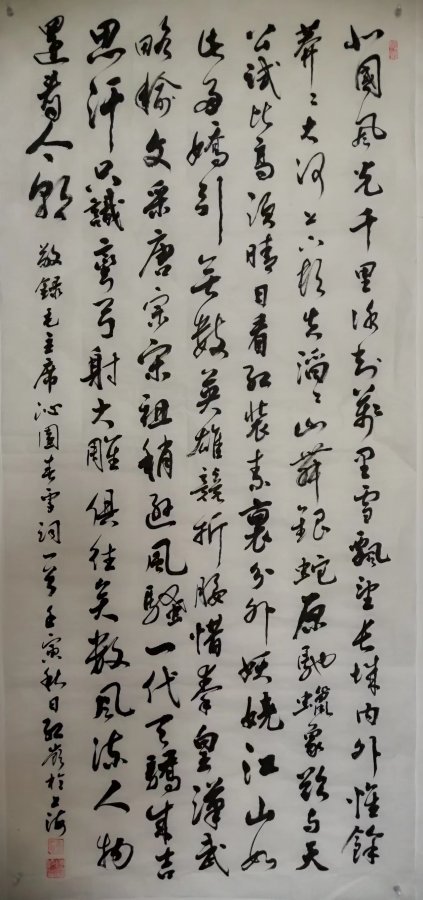 北國風光千里冰封萬里雪飄望長城内外惟餘
莽〻大河上下頓失滔〻山舞銀蛇原馳蠟象欲與天
公試比高須晴日看紅裝素裹分外妖嬈江山如
此多嬌引無數英雄競折腰惜秦皇漢武
略輸文采唐宗宋祖稍遜風騷一代天驕成吉
思汗只識彎弓射大雕俱往矣數風流人物
還看今朝 敬錄毛主席沁園春雪詞一首壬寅秋日紅於上海